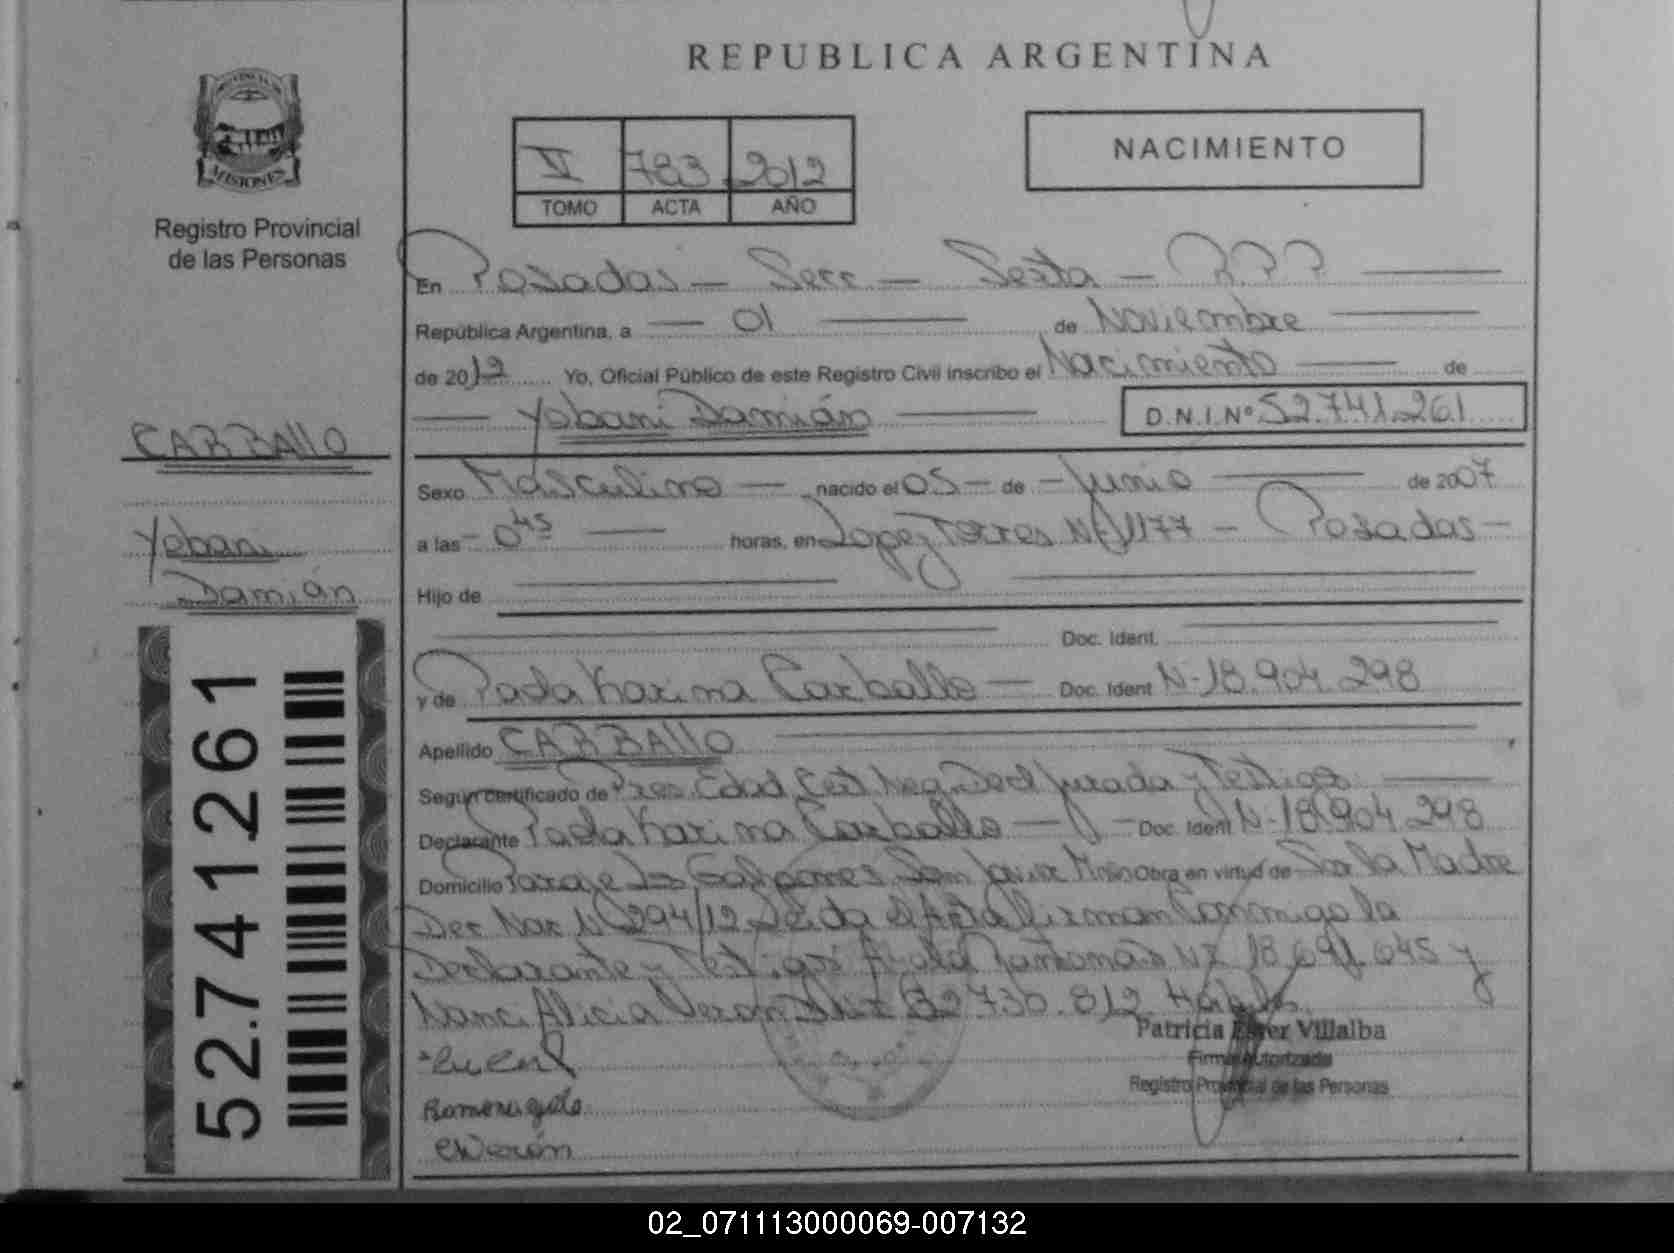 REPUBLICA ARGENTINA
PROVINCIA
MISIONES
Registro Provincial
de las Personas
V 783 2012
TOMO ACTA AÑO
NACIMIENTO
En Posadas - Secc - Sexta - R.P.P
República Argentina, a 01 de Noviembre
de 2012 Yo, Oficial Público de este Registro Civil inscribo el Nacimiento de
Yobani Damián D.N.I.Nº 52.741.261
CARBALLO
Yobani
Damián
52.741261
Sexo Masculino nacido el 05 de Junio de 2007
a las 0 45 horas, en Lopez Torres Nº 1177 - Posadas
Hijo de
Doc. Ident.
y de Karina Carballo Doc. Ident N- 18.904.298
Apellido CARBALLO
Según certificado de Pres. Edad Cert Neg. Decl Jurada y Testigos
Declarante Karina Carballo - Doc. Ident N- 18.904.298
Domicilio Paraje Los Galpones San Javier Mnes Obra en virtud de Ser la Madre
Nº 294/12 Leida el Acta firman Conmigo la
Declarante y Testigos 18.691.645 y
Alicia Veron 32.730.812 Hábiles
Patricia Ester Villalba
Firma Autorizada
Registro Provincial de las Personas
02_071113000069-007132